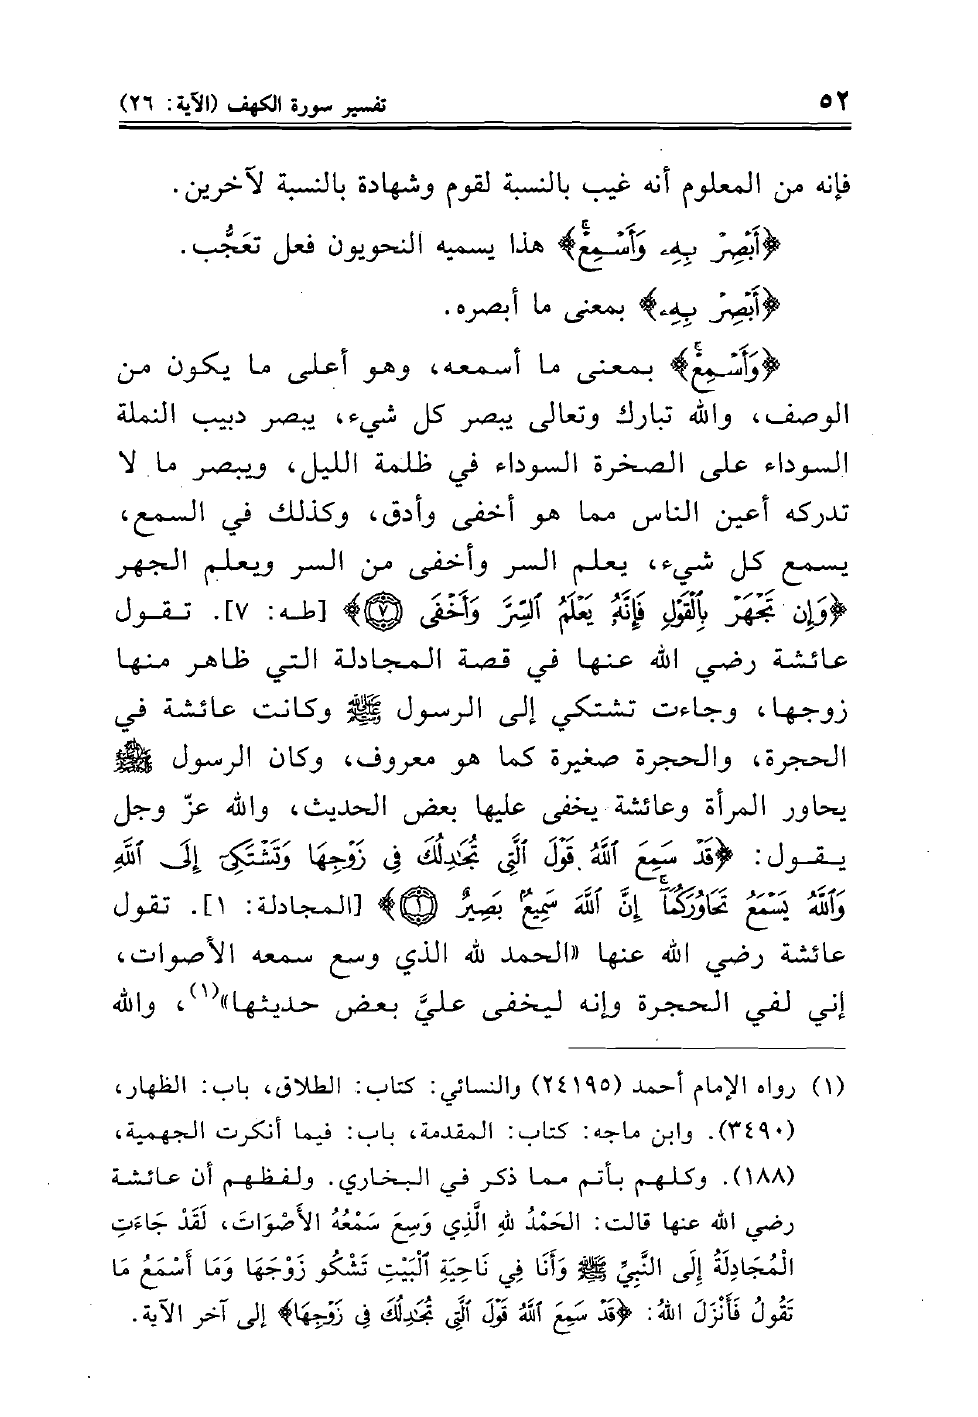 ٥٢
تفسير سورة الكهف (الآية: ٢٦)
فإنه من المعلوم أنه غيب بالنسبة لقوم وشهادة بالنسبة لآخرين.
﴿أَبْصِرْ بِهِۦ وَأَسْمِعْۚ﴾ هذا يسميه النحويون فعل تعَجُّب.
﴿أَبْصِرْ بِهِۦ﴾ بمعنى ما أبصره.
﴿وَأَسْمِعْۚ﴾ بمعنى ما أسمعه، وهو أعلى ما يكون من
الوصف، والله تبارك وتعالى يبصر كل شيء، يبصر دبيب النملة
السوداء على الصخرة السوداء في ظلمة الليل، ويبصر ما لا
تدركه أعين الناس مما هو أخفى وأدق، وكذلك في السمع،
يسمع كل شيء، يعلم السر وأخفى من السر ويعلم الجهر
﴿وَإِن تَجْهَرْ بِٱلْقَوْلِ فَإِنَّهُۥ يَعْلَمُ ٱلسِّرَّ وَأَخْفَى ۝٧﴾ [طه: ٧]. تقول
عائشة رضي الله عنها في قصة المجادلة التي ظاهر منها
زوجها، وجاءت تشتكي إلى الرسول ﷺ وكانت عائشة في
الحجرة، والحجرة صغيرة كما هو معروف، وكان الرسول ﷺ
يحاور المرأة وعائشة يخفى عليها بعض الحديث، والله عزّ وجل
يقول: ﴿قَدْ سَمِعَ ٱللَّهُ قَوْلَ ٱلَّتِى تُجَٰدِلُكَ فِى زَوْجِهَا وَتَشْتَكِىٓ إِلَى ٱللَّهِ
وَٱللَّهُ يَسْمَعُ تَحَاوُرَكُمَآۚ إِنَّ ٱللَّهَ سَمِيعٌۢ بَصِيرٌ ۝١﴾ [المجادلة: ١]. تقول
عائشة رضي الله عنها «الحمد لله الذي وسع سمعه الأصوات،
إني لفي الحجرة وإنه ليخفى عليَّ بعض حديثها»(١)، والله
(١) رواه الإمام أحمد (٢٤١٩٥) والنسائي: كتاب: الطلاق، باب: الظهار،
(٣٤٩٠). وابن ماجه: كتاب: المقدمة، باب: فيما أنكرت الجهمية،
(١٨٨). وكلهم بأتم مما ذكر في البخاري. ولفظهم أن عائشة
رضي الله عنها قالت: الحَمْدُ لله الَّذِي وَسِعَ سَمْعُهُ الأَصْوَاتَ، لَقَدْ جَاءَتِ
الْمُجَادِلَةُ إِلَى النَّبِيِّ ﷺ وَأَنَا فِي نَاحِيَةِ الْبَيْتِ تَشْكُو زَوْجَهَا وَمَا أَسْمَعُ مَا
تَقُولُ فَأَنْزَلَ اللهُ: ﴿قَدْ سَمِعَ ٱللَّهُ قَوْلَ ٱلَّتِى تُجَٰدِلُكَ فِى زَوْجِهَا﴾ إلى آخر الآية.